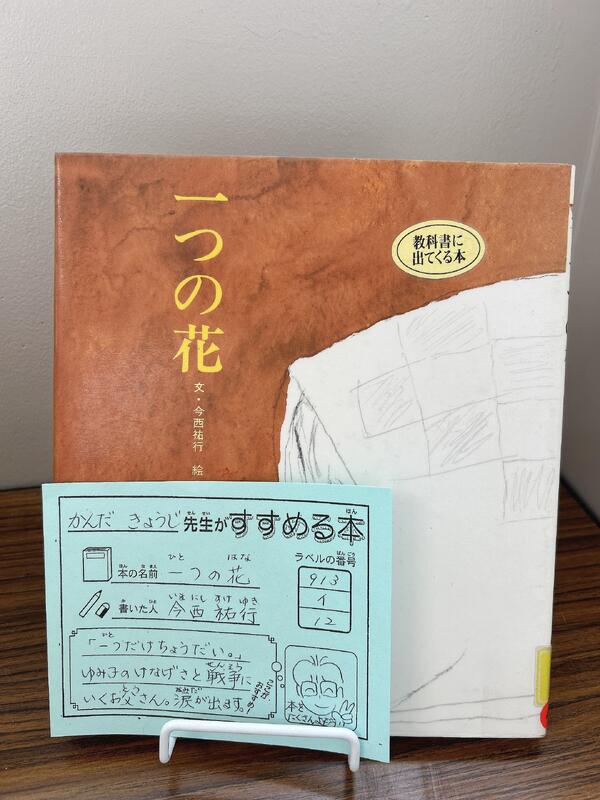 一つの花
文・今西祐行 絵
教科書に
出てくる本
かんだ きょうじ 先生がすすめる本
本の名前 一つの花
書いた人 今西 祐行
ラベルの番号
913
イ
12
「一つだけちょうだい。」
ゆみ子のけなげさと戦争に
いくお父さん。涙が出ます。
本を
たくさんよもう!